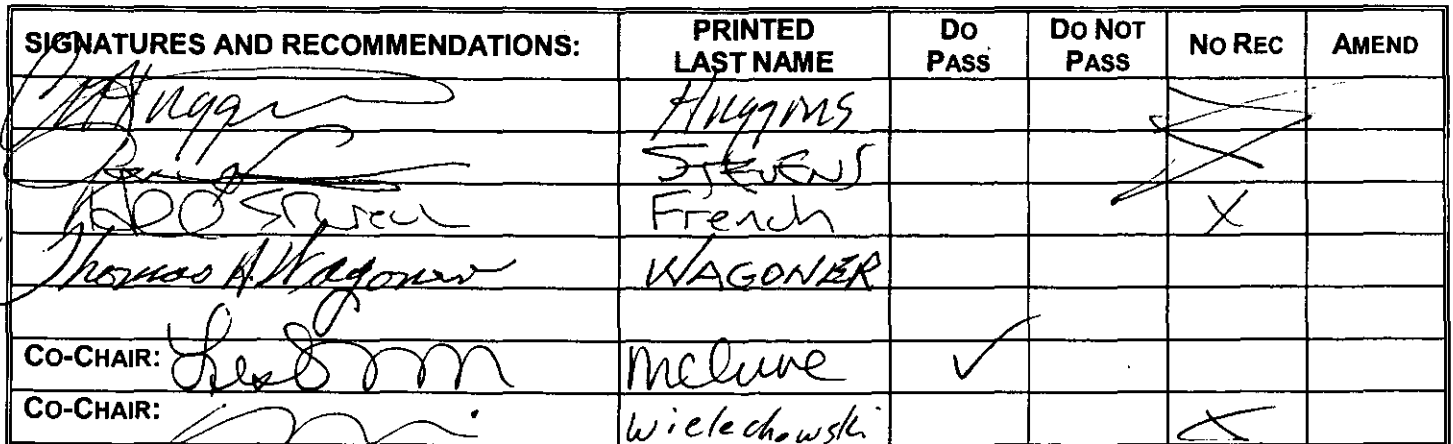 SIGNATURES AND RECOMMENDATIONS: PRINTED LAST NAME DO PASS DO NOT PASS NO REC AMEND
Huggins Huggins X
STEVENS X
French X
Thomas A. Wagoner WAGONER
CO-CHAIR: McGuire ✓
CO-CHAIR: Wielechowski X